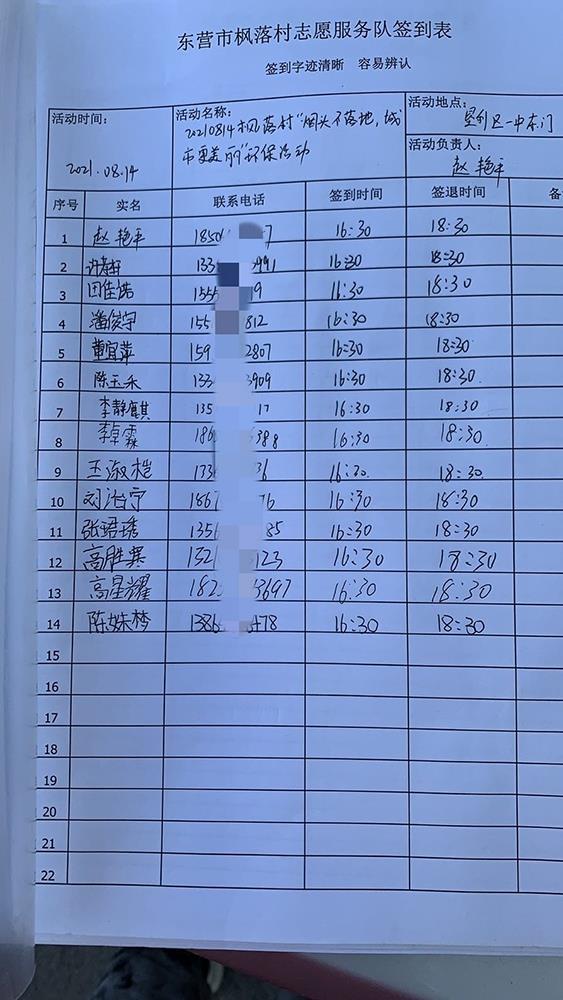 东营市枫落村志愿服务队签到表
签到字迹清晰 容易辨认
活动时间: 2021.08.14
活动名称: 20210814枫落村"烟头不落地,城
市更美丽"环保活动
活动地点: 垦利区一中东门
活动负责人: 赵艳平
序号 实名 联系电话 签到时间 签退时间 备
1 赵艳平 1850 7 16:30 18:30
2 133 991 16:30 18:30
3 田佳诺 1555 9 16:30 18:30
4 潘俊宇 155 812 16:30 18:30
5 董宜萍 159 2807 16:30 18:30
6 陈玉禾 133 3909 16:30 18:30
7 李静麒 135 17 16:30 18:30
8 李卓霖 186 388 16:30 18:30
9 王淑桤 173 36 16:30 18:30
10 刘治宁 1867 76 16:30 18:30
11 张珺琇 1356 85 16:30 18:30
12 高胜寒 152 123 16:30 18:30
13 高星耀 182 3697 16:30 18:30
14 陈姝梦 1386 478 16:30 18:30
15
16
17
18
19
20
21
22